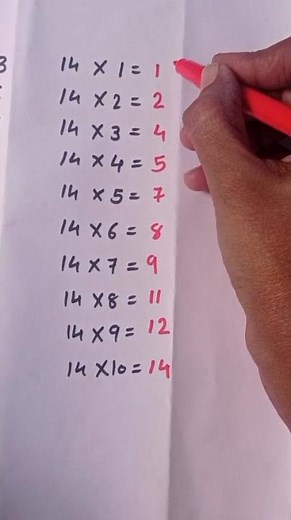 3
14 × 1 = 1
14 × 2 = 2
14 × 3 = 4
14 × 4 = 5
14 × 5 = 7
14 × 6 = 8
14 × 7 = 9
14 × 8 = 11
14 × 9 = 12
14 × 10 = 14